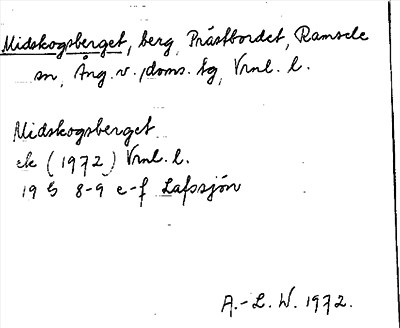 Midskogsberget, berg, Prästbordet, Ramsele
sn, Ång. v. doms. tg, Vrnl. l.
Midskogsberget
ek (1972) Vrnl. l.
19 G 8-9 e-f Lafssjön
A.-L. W. 1972.